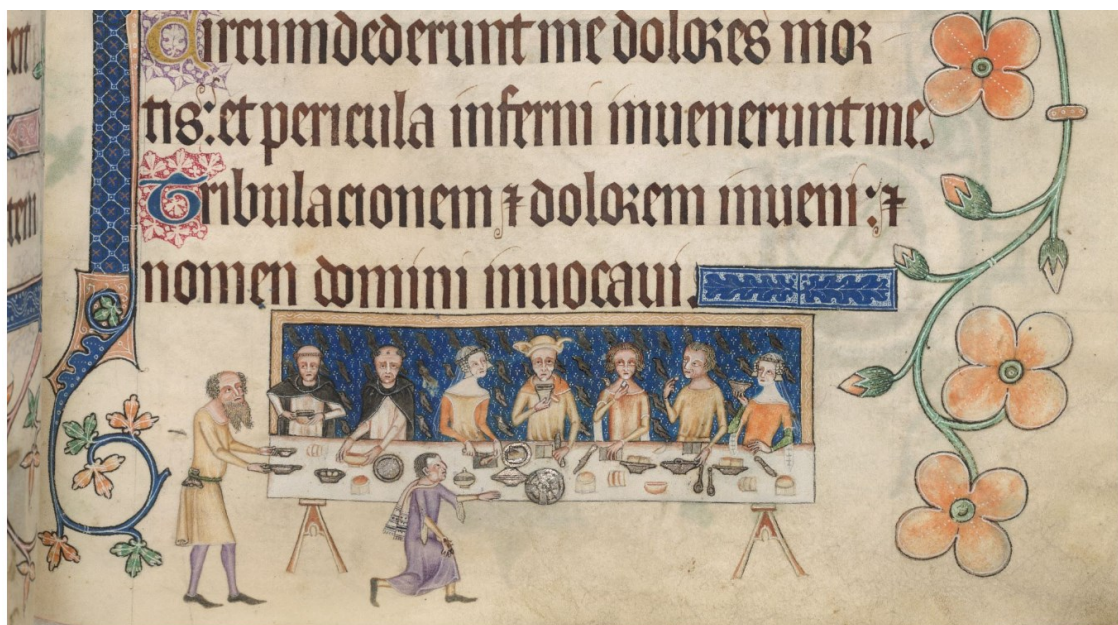 Circumdederunt me dolores mor
tis: et pericula inferni inuenerunt me.
Tribulacionem ⁊ dolorem inueni: ⁊
nomen domini inuocaui.